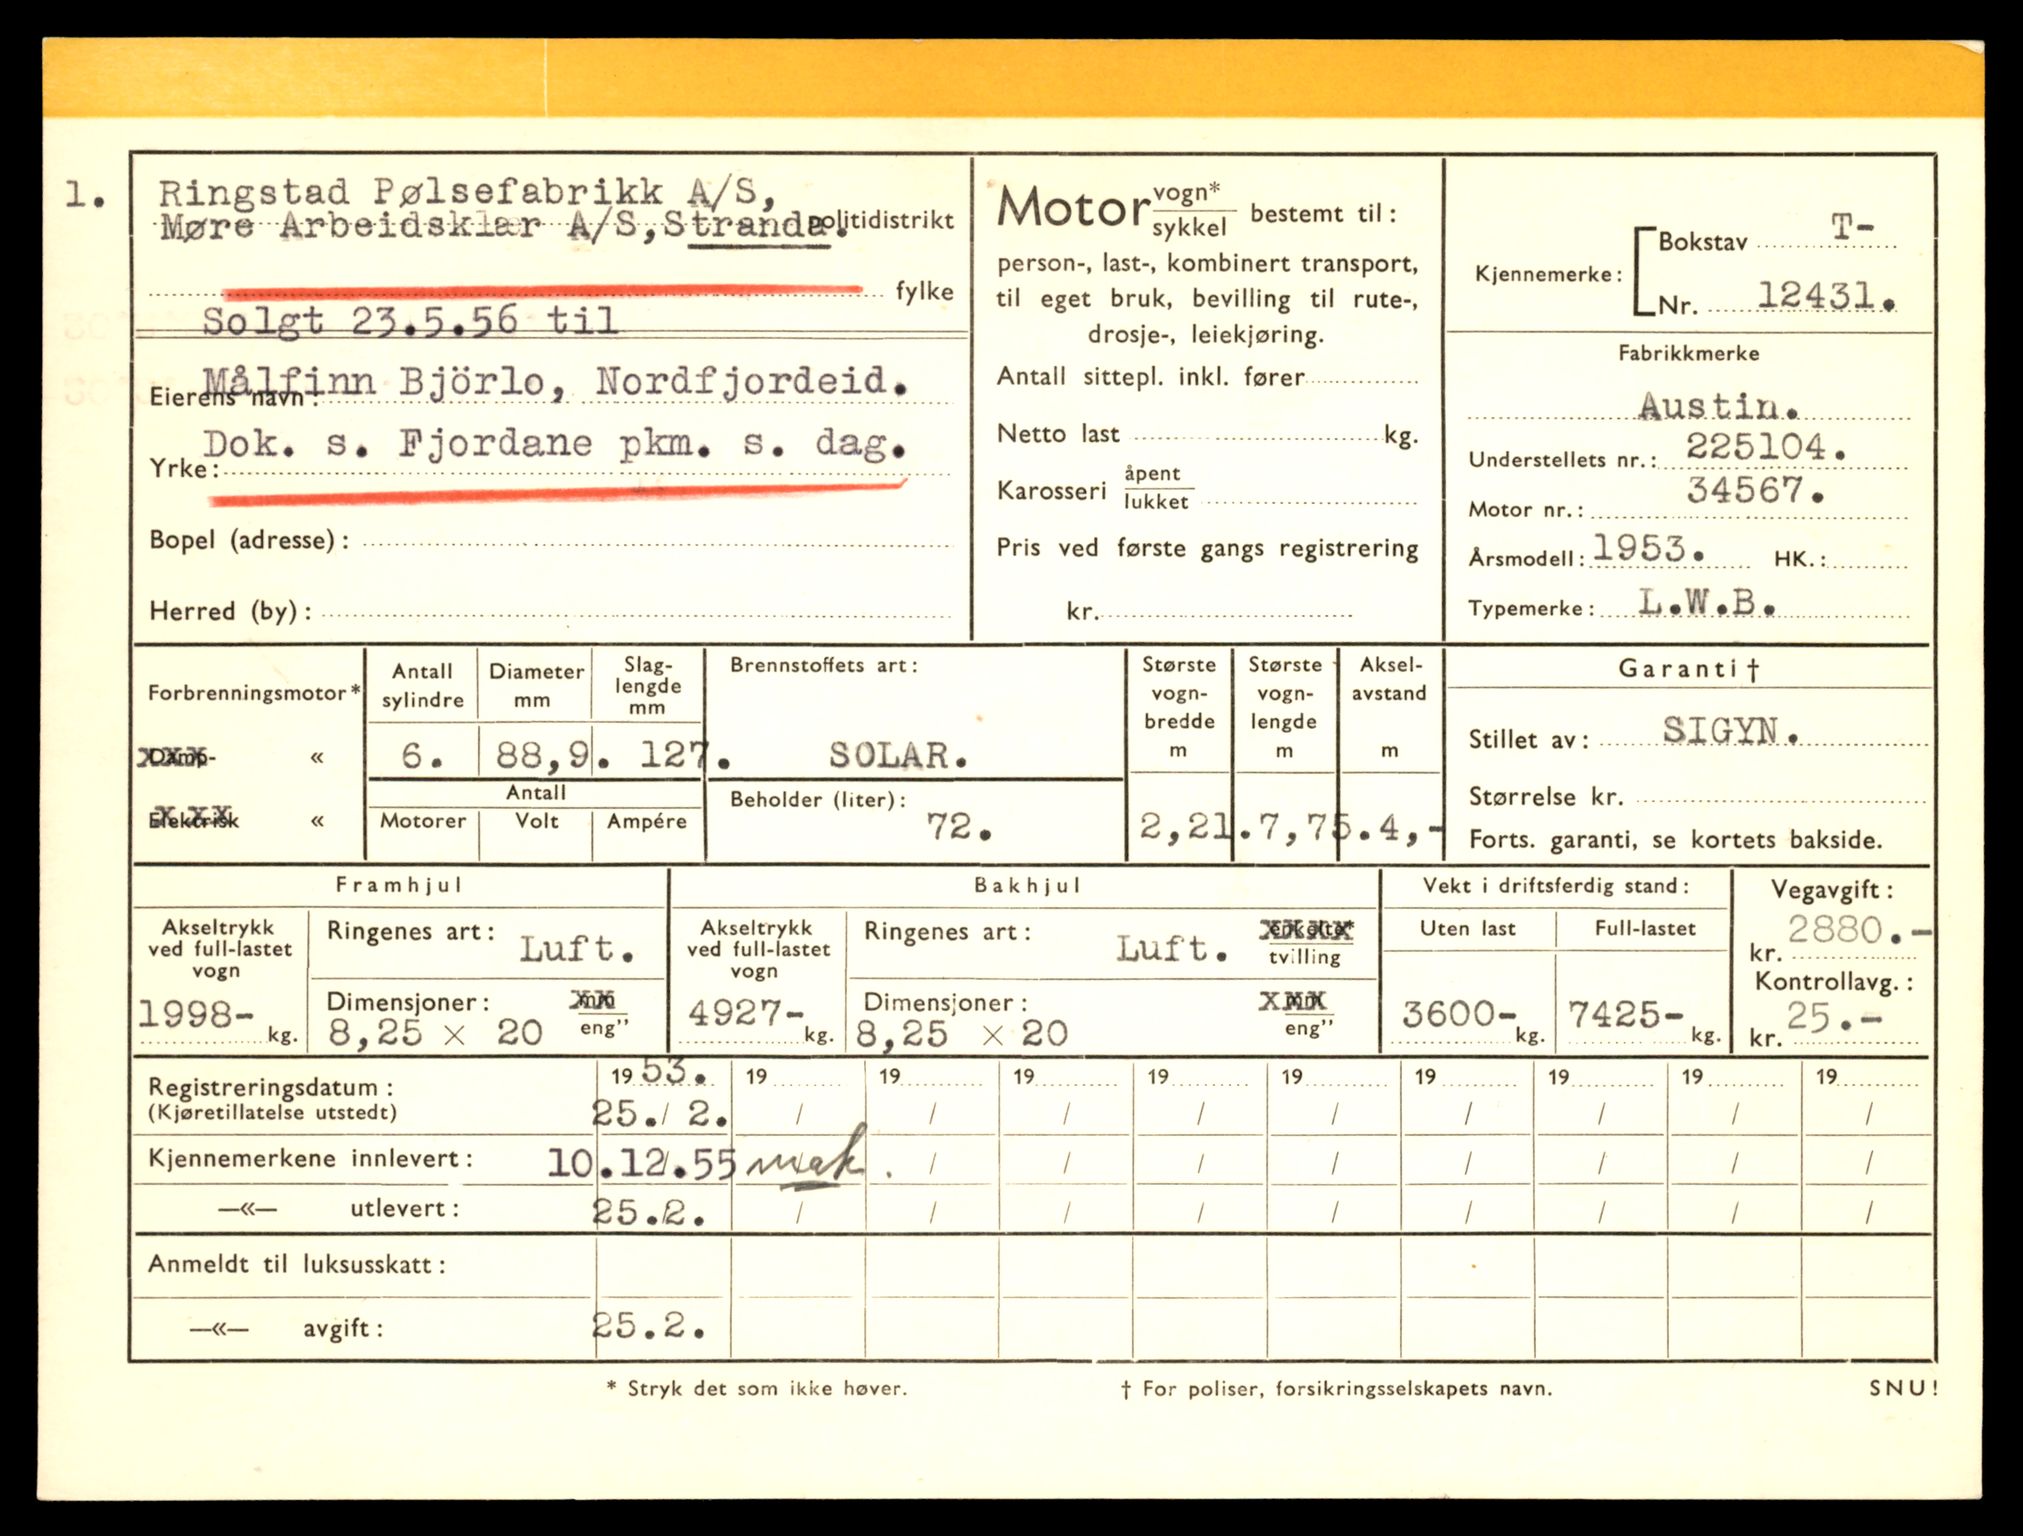 1. Ringstad Pølsefabrikk A/S,
Møre Arbeidsklær A/S, Stranda. politidistrikt
fylke
Solgt 23.5.56 til
Målfinn Björlo, Nordfjordeid.
Eierens navn:
Dok. s. Fjordane pkm. s. dag.
Yrke:
Bopel (adresse):
Herred (by):
Motor vogn* / sykkel bestemt til:
person-, last-, kombinert transport,
til eget bruk, bevilling til rute-,
drosje-, leiekjøring.
Antall sittepl. inkl. fører
Netto last kg.
Karosseri åpent / lukket
Pris ved første gangs registrering
kr.
Kjennemerke: Bokstav T-
Nr. 12431.
Fabrikkmerke
Austin.
Understellets nr.: 225104.
Motor nr.: 34567.
Årsmodell: 1953. HK.:
Typemerke: L.W.B.
Forbrenningsmotor*
xxx Damp- «
x x x Elektrisk «
Antall sylindre
6.
Diameter mm
88,9.
Slaglengde mm
127.
Antall
Motorer Volt Ampére
Brennstoffets art:
SOLAR.
Beholder (liter):
72.
Største vogn-bredde m
2,21.
Største vogn-lengde m
7,75.
Aksel-avstand m
4,-
Garanti †
Stillet av: SIGYN.
Størrelse kr.
Forts. garanti, se kortets bakside.
Framhjul
Akseltrykk
ved full-lastet
vogn
1998- kg.
Ringenes art: Luft.
Dimensjoner: xx mm / eng”
8,25 x 20
Bakhjul
Akseltrykk
ved full-lastet
vogn
4927- kg.
Ringenes art: Luft. xxxx enkelte* / tvilling
Dimensjoner: xxx mm / eng”
8,25 x 20
Vekt i driftsferdig stand:
Uten last Full-lastet
3600- kg. 7425- kg.
Vegavgift:
kr. 2880.-
Kontrollavg.:
kr. 25.-
Registreringsdatum: 1953. 19 19 19 19 19 19 19 19 19
(Kjøretillatelse utstedt) 25./2. / / / / / / / / /
Kjennemerkene innlevert: 10.12.55 mak. / / / / / / / /
—«— utlevert: 25./2. / / / / / / / / /
Anmeldt til luksusskatt:
—«— avgift: 25.2.
* Stryk det som ikke høver. † For poliser, forsikringsselskapets navn. SNU!